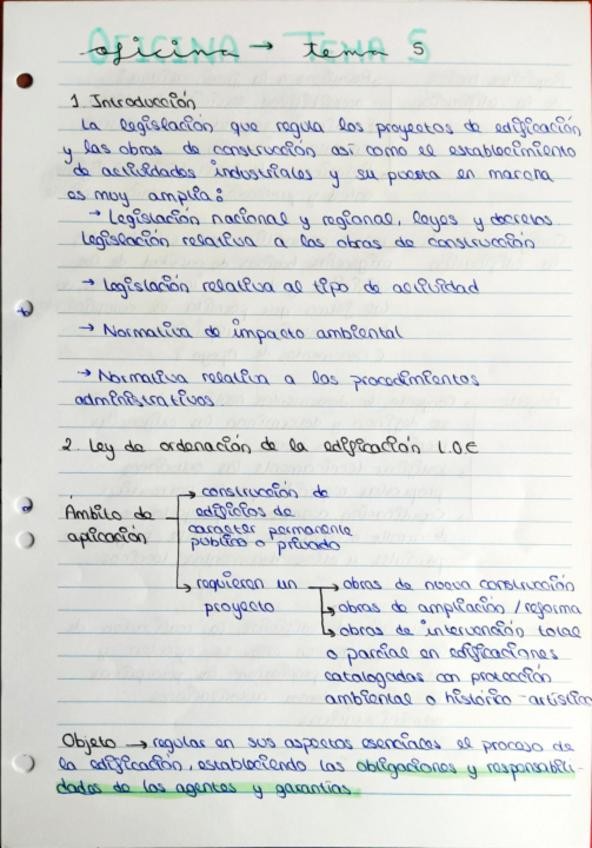 OFICINA - TEMA 5
oficina → tema 5
1. Introducción
La legislación que regula los proyectos de edificación
y las obras de construcción así como el establecimiento
de actividades industriales y su puesta en marcha
es muy amplia:
→ Legislación nacional y regional, leyes y decretos
legislación relativa a las obras de construcción
→ legislación relativa al tipo de actividad
→ Normativa de impacto ambiental
→ Normativa relativa a los procedimientos
administrativos
2. Ley de ordenación de la edificación L.O.E
→ construcción de
edificios de
Ámbito de
carácter permanente
aplicación
público o privado
→ requieren un → obras de nueva construcción
proyecto → obras de ampliación / reforma
→ obras de intervención total
o parcial en edificaciones
catalogadas con protección
ambiental o histórico-artístico
Objeto → regular en sus aspectos esenciales el proceso de
la edificación, estableciendo las obligaciones y responsabili-
dades de los agentes y garantías